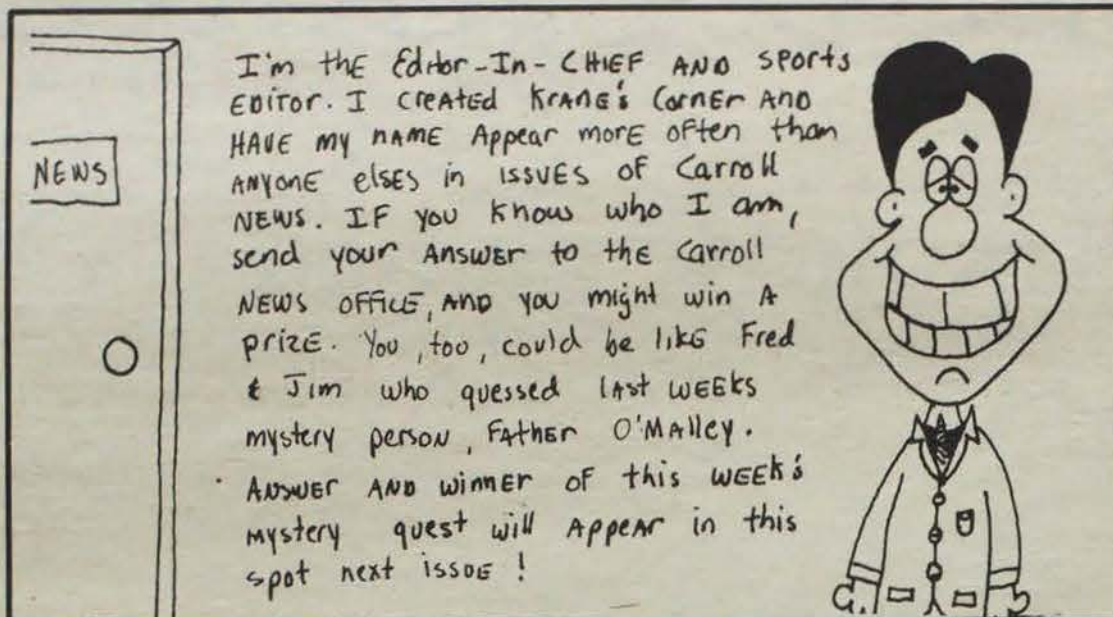 NEWS
I'm thE Editor-In-CHIEF AND sports
EDITOR. I CREATED KRANE's CornEr AND
HAVE my nAME Appear morE often than
ANyonE elsES in ISSUES of Carroll
NEWS. IF you Know who I am,
send your ANSWER to thE Carroll
NEWS OFFICE, AND you might win A
prizE. You, too, could be likE Fred
& Jim who quessed lAst WEEKs
mystery person, FAther O'MAlley.
ANSWER AND winnER of this WEEK's
mystery quest will AppEAr in this
spot next issuE!